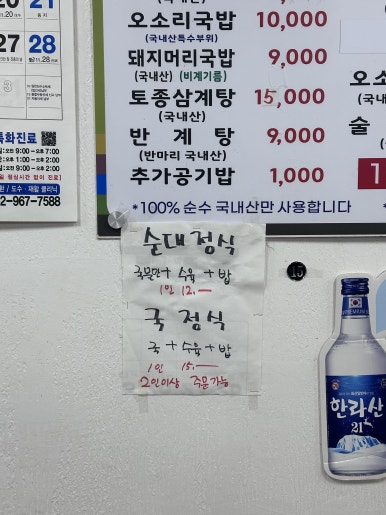 20
21
27
28
3
특화진료
오전 9:00 ~ 오후 7:00
오전 9:00 ~ 오후 2:00
2-967-7588
오소리국밥 10,000
(국내산특수부위)
돼지머리국밥 9,000
(국내산) (비계기름)
토종삼계탕 15,000
(국내산)
반 계 탕 9,000
(반마리 국내산)
추가공기밥 1,000
오 소
술
1
*100% 순수 국내산만 사용합니다
순대정식
국물만 + 수육 + 밥
1인 12.—
국 정식
국 + 수육 + 밥
1인 15.—
2인이상 주문가능
15
한라산
21